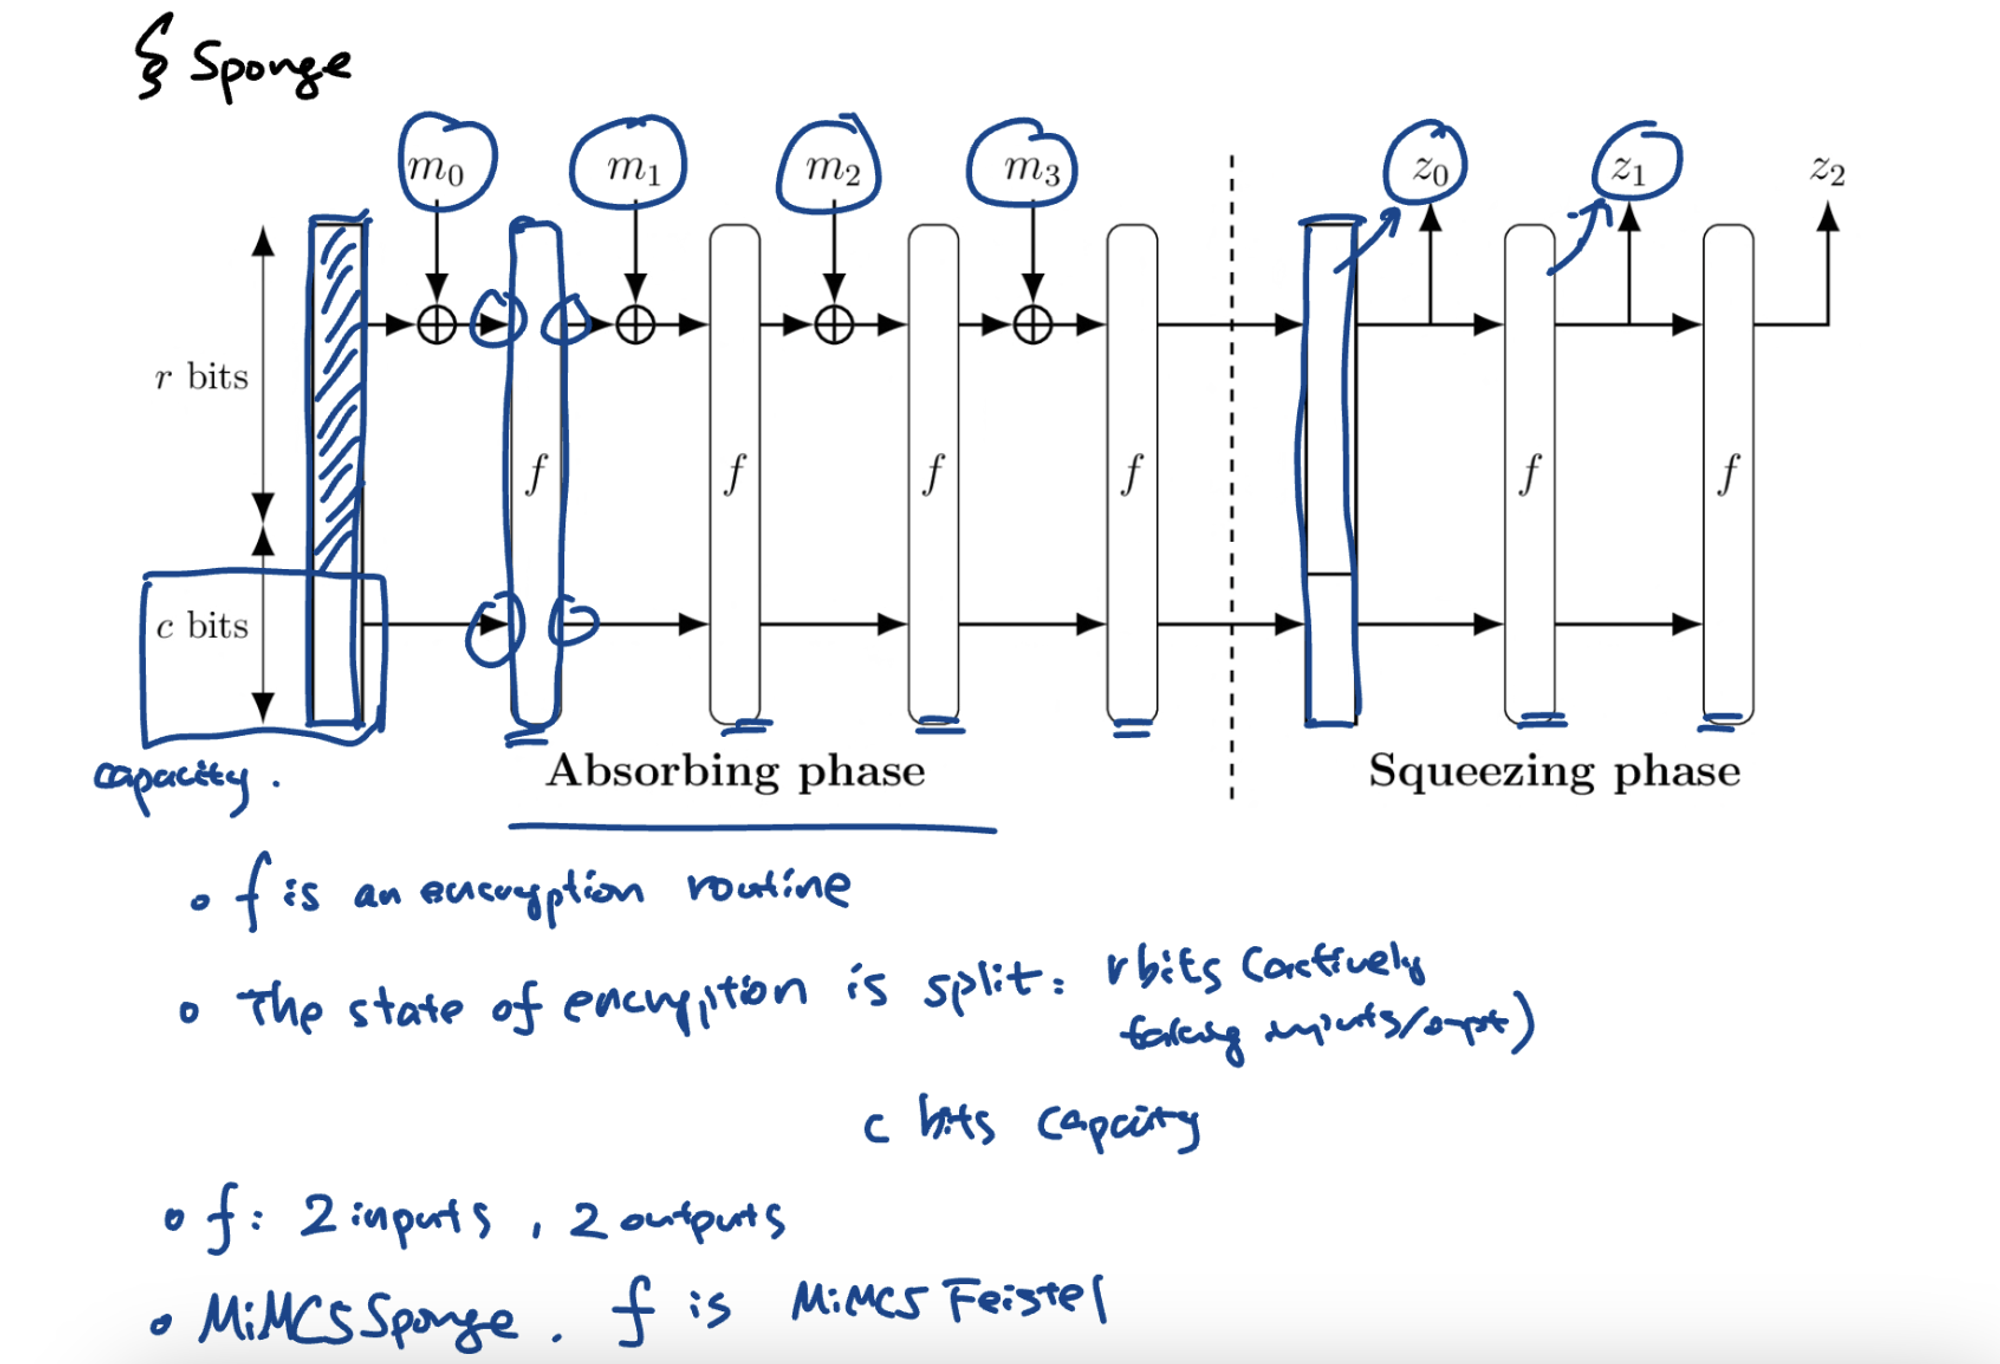 § Sponge
m0 m1 m2 m3 z0 z1 z2
r bits
f f f f f f
c bits
Absorbing phase Squeezing phase
capacity.
∘ f is an encryption routine
∘ The state of encryption is split: r bits (actively
taking inputs/
c bits capacity
∘ f: 2 inputs, 2 outputs
∘ MiMC5Sponge. f is MiMC5Feistel